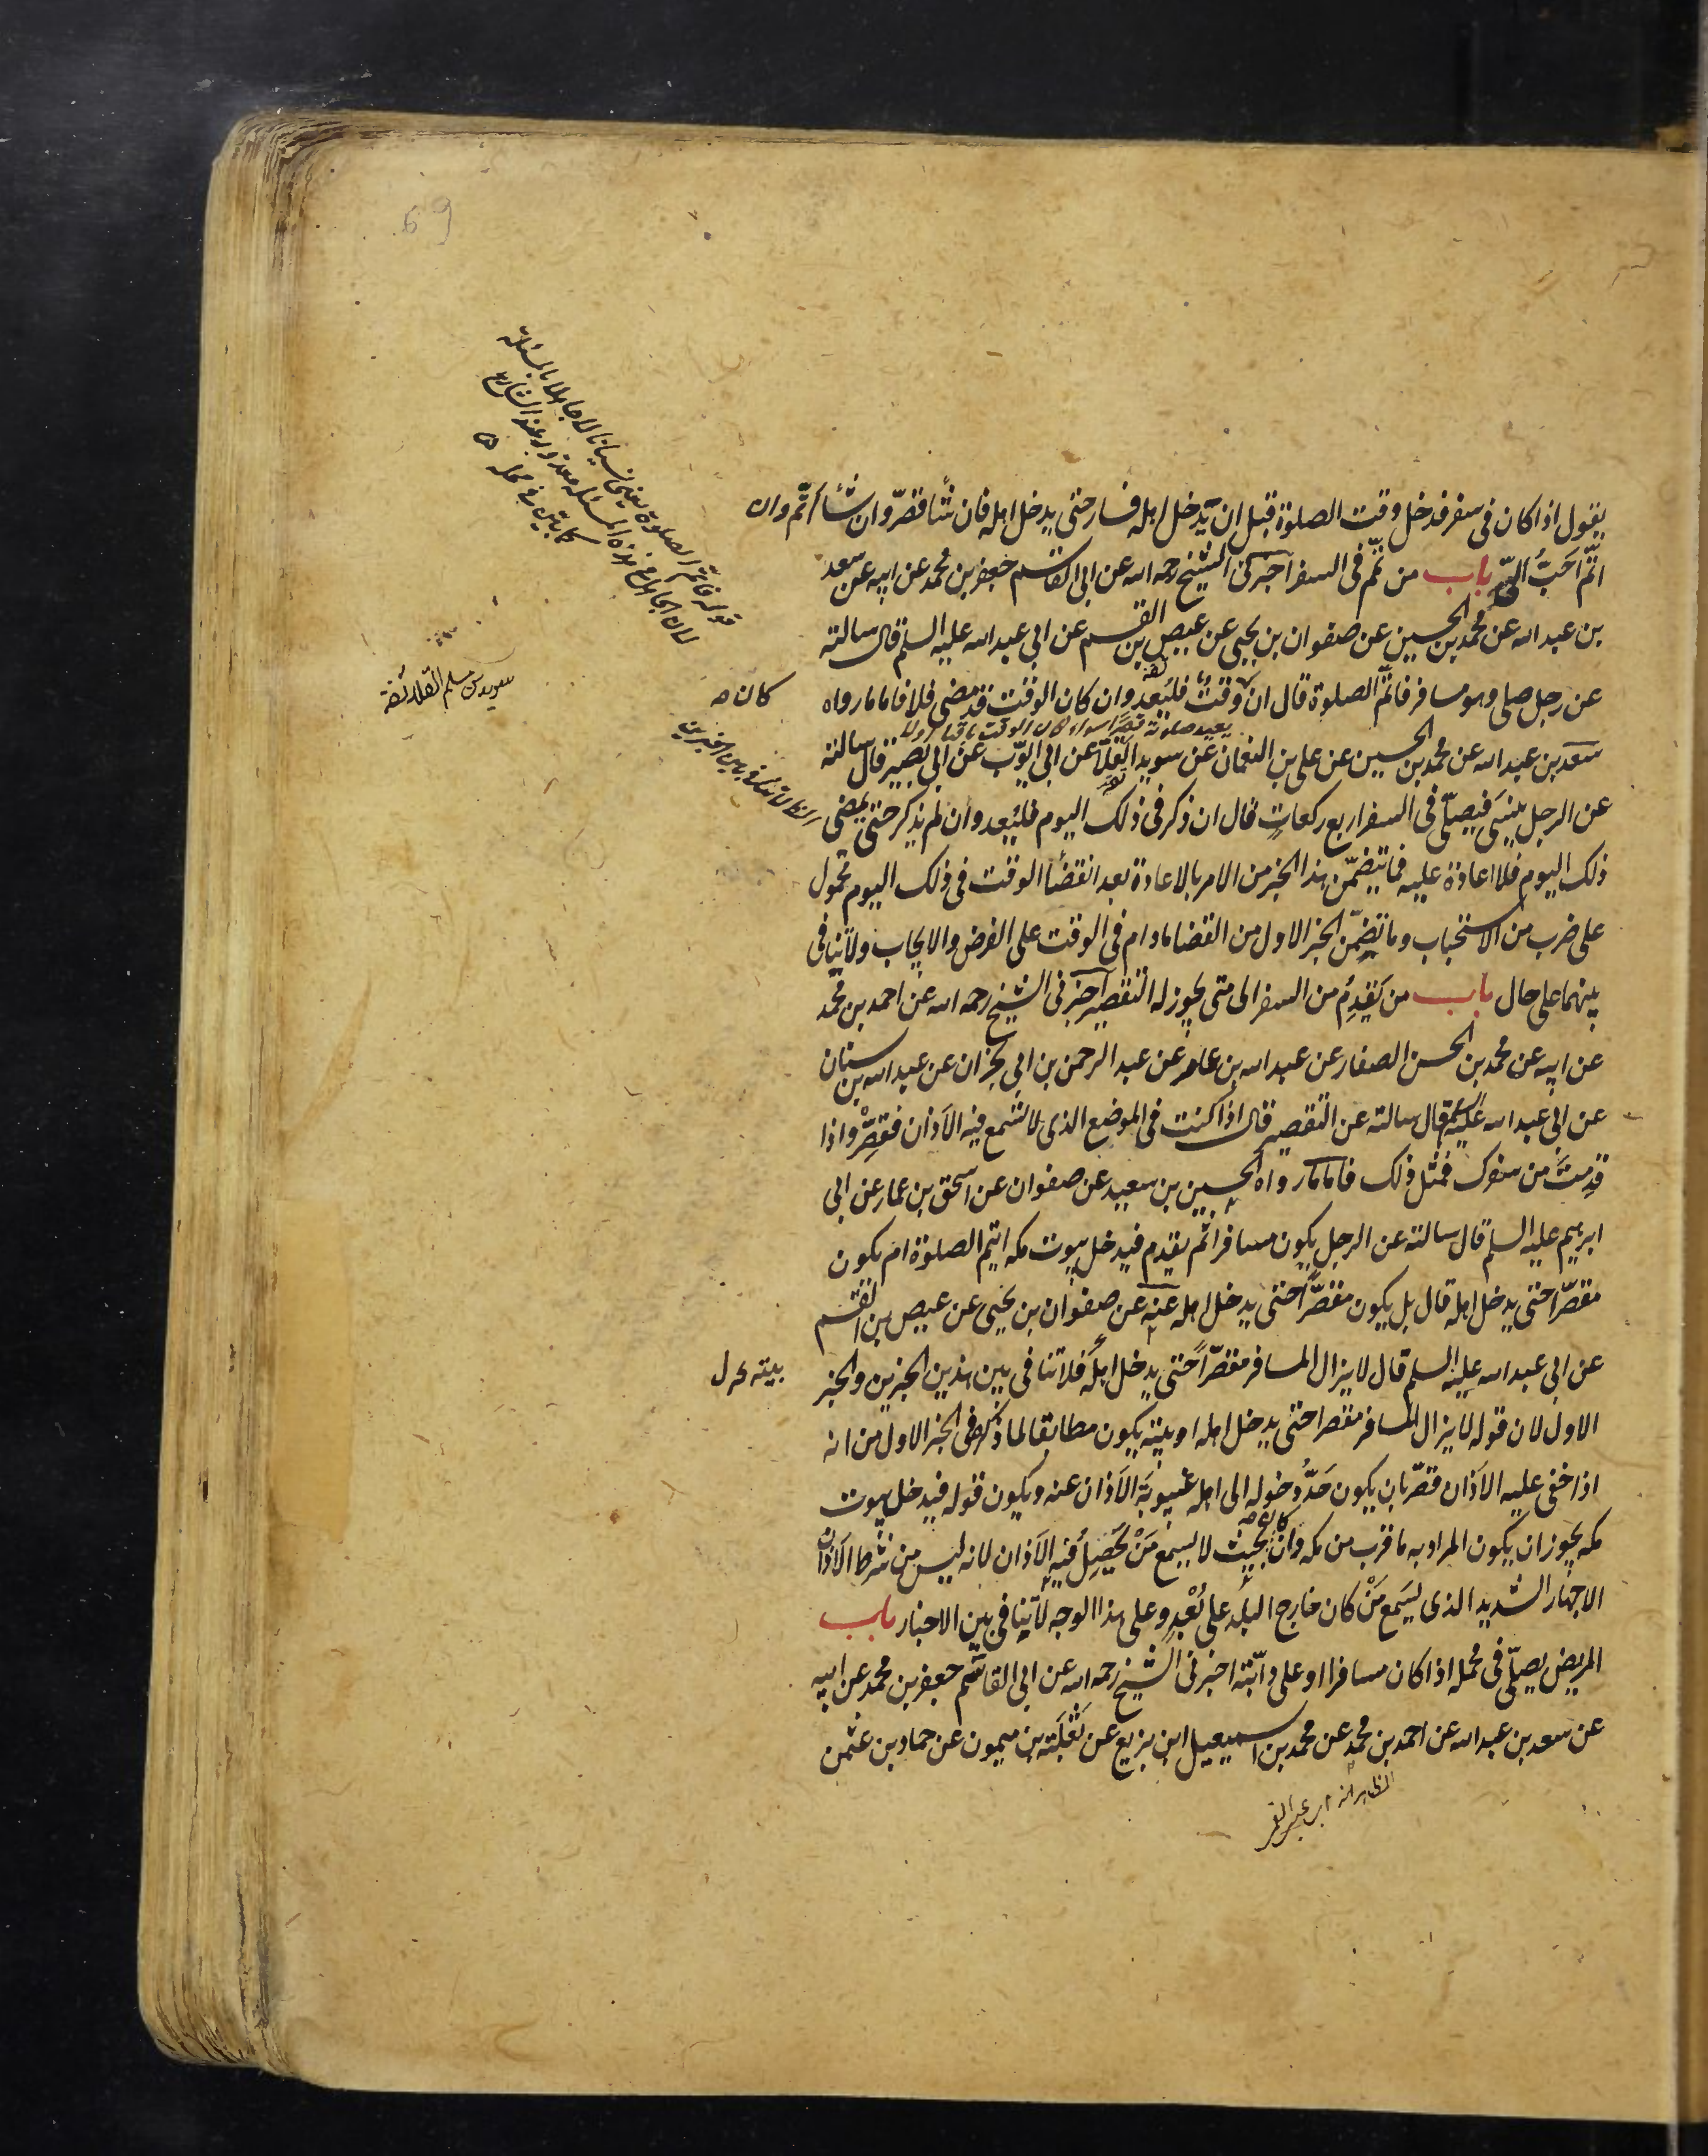 69
يقول اذا كان فى سفر فدخل وقت الصلوة قبل ان يدخل اهله فسار حتى يدخل اهله فان شاء قصّر وان شاء اتّم وان
اتّم احَبُّ الىّ باب من تمّم فى السفر اخبرنى الشيخ رحمه الله عن ابى القاسم جعفر بن محمد عن ابيه عن سعد
بن عبد الله عن محمد بن الحسين عن صفوان بن يحيى عن عيص بن القسم عن ابى عبد الله عليه السلم قال سالته
عن رجل صلى وهو مسافر فاتمّ الصلوة قال ان وقتٌ فليُعِد وان كان الوقت قد مضى فلا فاما ما رواه
كان صح
سعد بن عبد الله عن محمد بن الحسين عن على بن النعمان عن سويد القلّا عن ابى ايّوب عن ابى بصير قال سالته
عن الرجل ينسَى فيصلّى فى السفر اربع ركعاتٍ قال ان ذكر فى ذلك اليوم فليُعِد وان لم يذكر حتى يمضى
ذلك اليوم فلا اعادة عليه فما تيضمّن هذا الخبر من الامر بالاعادة بعد انقضاء الوقت فى ذلك اليوم محمول
على ضرب من الاستحباب وما تضمّن الخبر الاول من القضا ما دام فى الوقت على الفرض والايجاب ولا تنافى
بينهما على حال باب من يَقدِمُ من السفر الى متى يجوز له التقصير اخبرنى الشيخ رحمه الله عن احمد بن محمد
عن ابيه عن محمد بن الحسن الصفار عن عبد الله بن عامر عن عبد الرحمن بن ابى نجران عن عبد الله بن سنان
عن ابى عبد الله عليه السلم قال سالته عن التقصير قال اذا كنت فى الموضع الذى لا تسمع فيه الاَذان فقصِّر واذا
قدِمتَ من سفرك فمثل ذلك فاما ما رواه الحسين بن سعيد عن صفوان عن اسحق بن عمار عن ابى
ابرهيم عليه السلم قال سالته عن الرجل يكون مسافرا ثم يقدم فيدخل بيوت مكه ايتم الصلوة ام يكون
مقصّرا حتى يدخل اهله قال بل يكون مقصّراً حتى يدخل اهله عنه عن صفوان بن يحيى عن عيص بن القسم
عن ابى عبد الله عليه السلم قال لا يزال المسافر مقصّراً حتى يدخل اهلَه فلا تنافى بين هذين الخبرين والخبر
بيته
الاول لان قوله لا يزال المسافر مقصرا حتى يدخل اهله او بيته يكون مطابقا لما ذكر فى الخبر الاول من انه
اذا خفى عليه الاَذان قصّر بان يكون حَدُّ دخوله الى اهله غيبوبَة الاَذان عنه ويكون قوله فيدخل بيوت
مكه يجوز ان يكون المراد به ما قرب من مكه وان كان بحيث لا يسمع مَنْ يَحصِلُ فيه الاَذان لانه ليس من شرط الاَذان
الاجهار الشديد الذى يَسَمع مَنْ كان خارج البلد على بُعْدٍ وعلى هذا الوجه لا تنافى بين الاخبار باب
المريض يصلّى فى محمله اذا كان مسافرا او على دابّته اخبرنى الشيخ رحمه الله عن ابى القاسم جعفر بن محمد عن ابيه
عن سعد بن عبد الله عن احمد بن محمد عن محمد بن اسمعيل ابن بزيع عن ثَعْلَبَة بن ميمون عن حماد بن عثمن
قوله فاتمّ الصلوة يعنى نسيانا لا جاهلا بالمسئلة
لان الجاهل فى هذه المسئله معذور عند الشارع
كما بيّن فى محله
سويد بن مسلم القلا ثقة